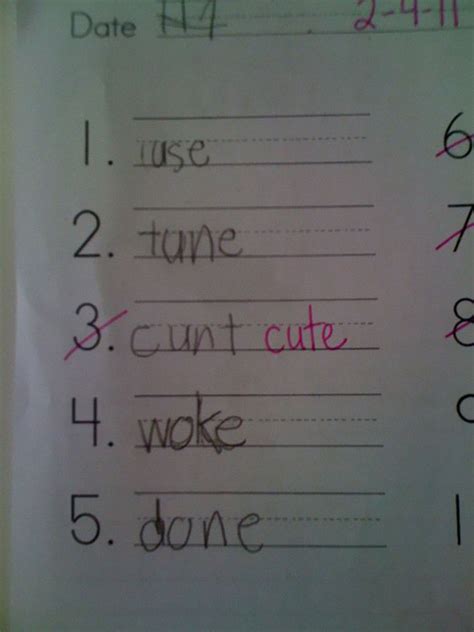 Date H4 2-4-11
1. use 6
2. tune 7
3. cunt cute 8
4. woke
5. done